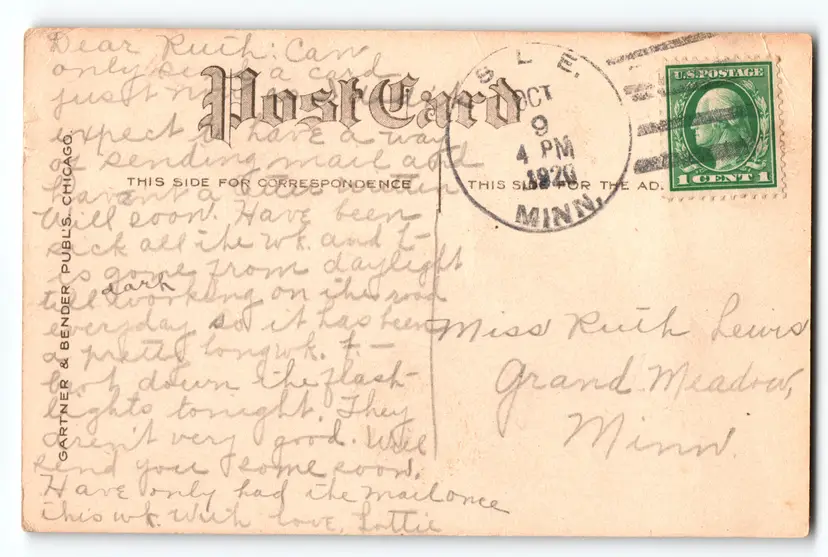 Dear Ruth: Can
only send a card
just now
expect to have a way
of sending mail and
haven't a letter written
Will soon. Have been
sick all the wk. and t-
is gone from daylight
till dark working on the road
everyday so it has been
a pretty long wk. t-
took down the flash-
lights tonight. They
aren't very good. Will
send you some soon.
Have only had the mail once
this wk. With love. Lottie
Post Card
THIS SIDE FOR CORRESPONDENCE
THIS SIDE FOR THE AD.
GARTNER & BENDER PUBL'S. CHICAGO.
SLE.
OCT
9
4 PM
1920
MINN.
U.S. POSTAGE
1 CENT 1
Miss Ruth Lewis
Grand Meadow,
Minn.